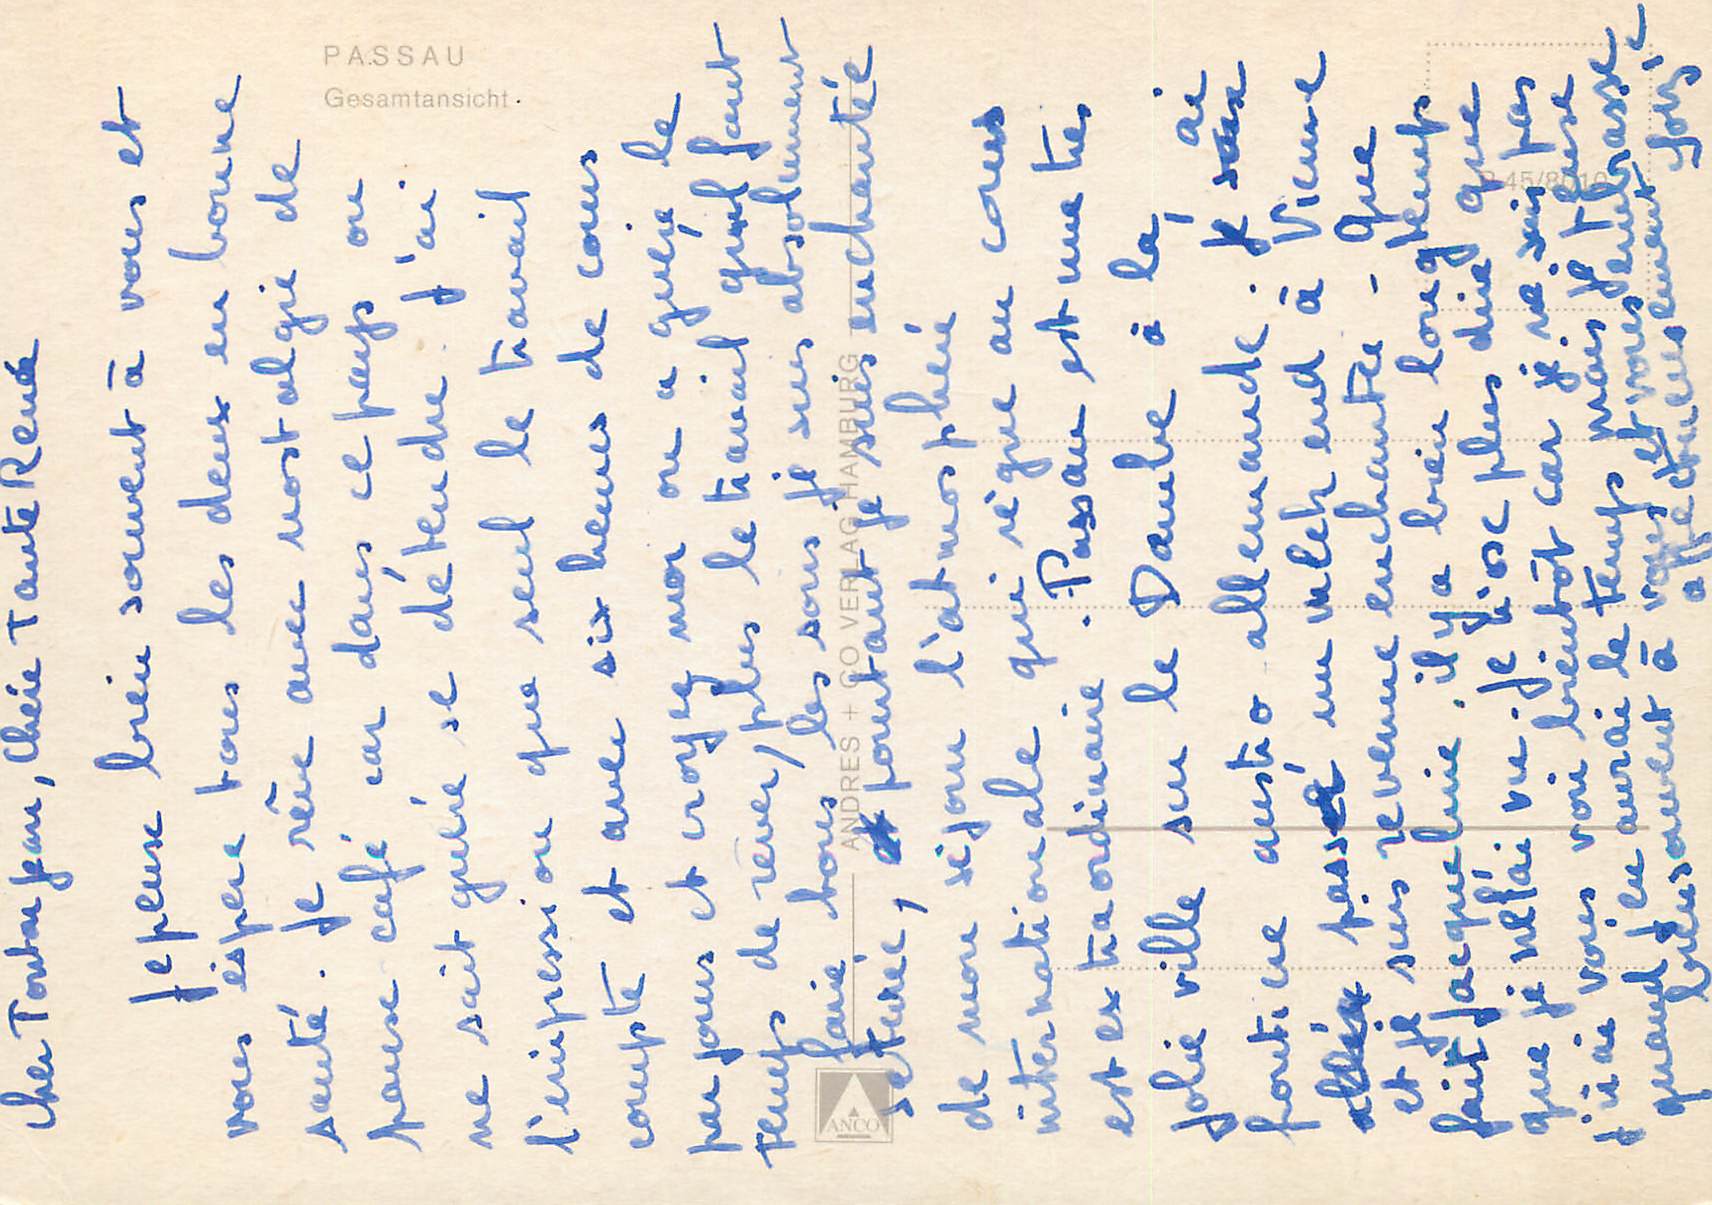 PASSAU
Gesamtansicht
ANDRES + CO VERLAG HAMBURG
ANCO
P 45/8010
Cher Tonton Jean, Chère Tante Renée
Je pense bien souvent à vous et
vous espère tous les deux en bonne
santé. Je rêve avec nostalgie de
pause café car dans ce pays on
ne sait guère se détendre. J'ai
l'impression que seul le travail
compte et avec six heures de cours
par jour et croyez moi on a guère le
temps de rêver/plus le travail qu'il faut
faire tous les soirs je suis absolument
, pourtant je suis enchantée
de mon séjour l'atmosphère
internationale qui règne au cours
est extraordinaire. Passau est une très
jolie ville sur le Danube à la
frontière austro allemande. J' ai
passé un week end à Vienne
et je suis revenue enchantée - Que
fait Jacqueline il y a bien longtemps
que je ne l'ai vu. Je n'ose plus dire que
j'irai vous voir bientôt car je ne sais pas
quand j'en aurai le temps mais je pense
bien souvent à vous et vous embrasse
affectueusement